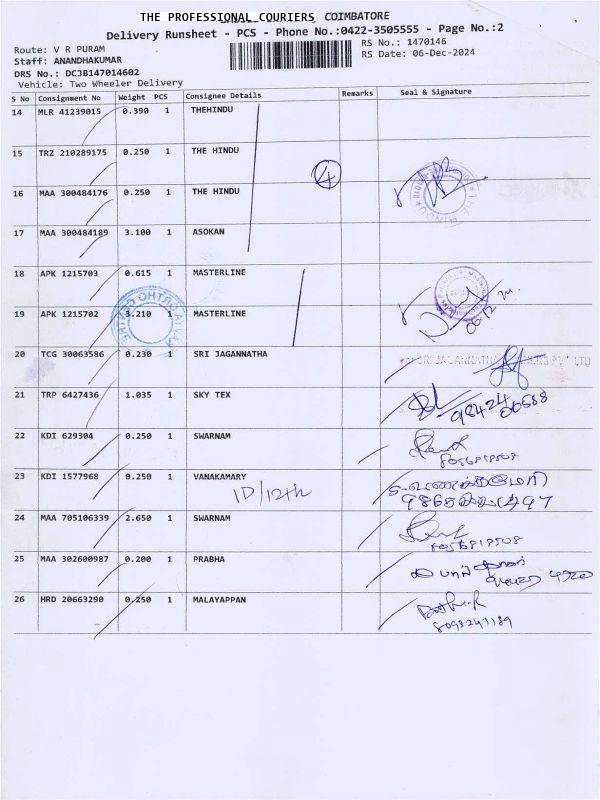 THE PROFESSIONAL COURIERS, COIMBATORE
Delivery Runsheet - PCS - Phone No.:0422-3505555 - Page No.:2
Route: V R PURAM
RS No.: 1470146
Staff: ANANDHAKUMAR
RS Date: 06-Dec-2024
DRS No.: DCJB147014602
Vehicle: Two Wheeler Delivery
S No Consignment No Weight PCS Consignee Details Remarks Seal & Signature
14 MLR 41239015 0.390 1 THEHINDU
15 TRZ 210289175 0.250 1 THE HINDU
4
16 MAA 300484176 0.250 1 THE HINDU
17 MAA 300484189 3.100 1 ASOKAN
18 APK 1215703 0.615 1 MASTERLINE
19 APK 1215702 3.210 1 MASTERLINE
20 TCG 30063586 0.230 1 SRI JAGANNATHA
21 TRP 6427436 1.035 1 SKY TEX
98424
00588
22 KDI 629304 0.250 1 SWARNAM
23 KDI 1577968 0.250 1 VANAKAMARY
ID/12th
24 MAA 705106339 2.650 1 SWARNAM
25 MAA 302600987 0.200 1 PRABHA
26 HRD 20663290 0.250 1 MALAYAPPAN
8098241189